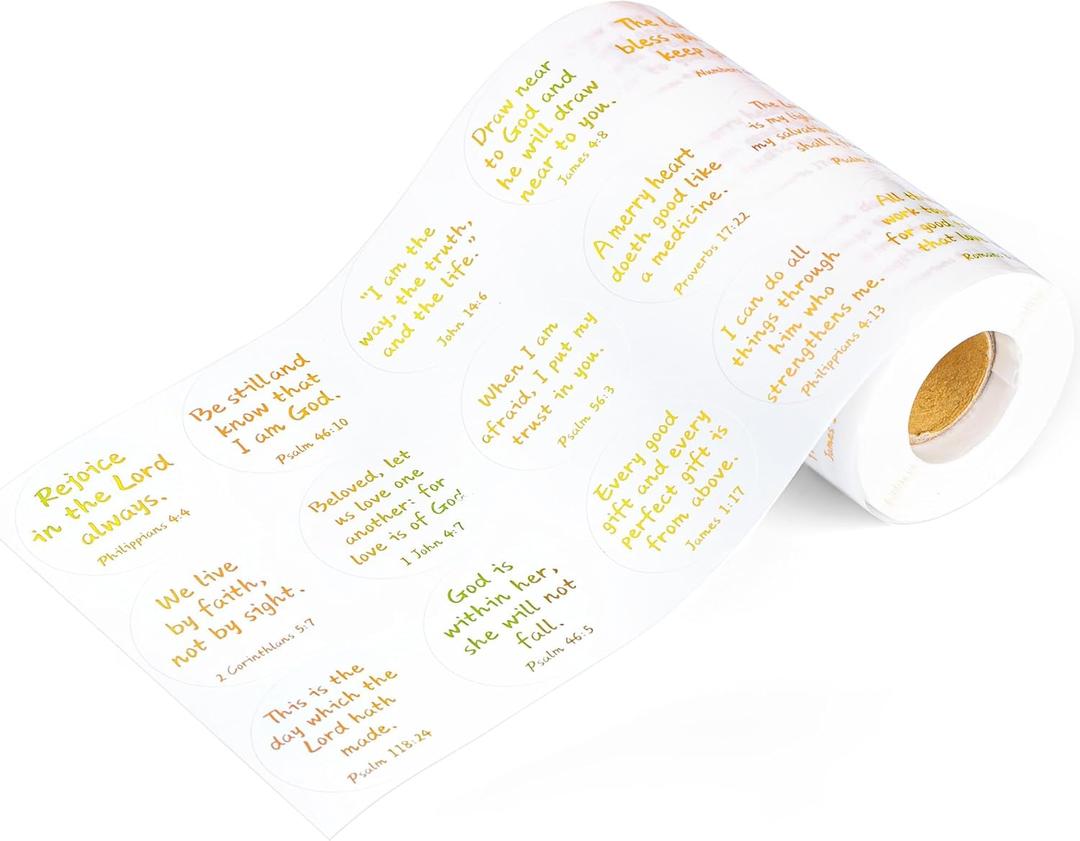 The
bless
keep
Draw near
to God and
he will draw
near to you.
James 4:8
The
is my
my
shall
Psalm
A merry heart
doeth good like
a medicine.
Proverbs 17:22
All
work
for good
that
"I am the
way, the truth,
and the life."
John 14:6
I can do all
things through
him who
strengthens me.
Philippians 4:13
When I am
afraid, I put my
trust in you.
Psalm 56:3
Be still and
know that
I am God.
Psalm 46:10
Every good
gift and every
perfect gift is
from above.
James 1:17
Rejoice
in the Lord
always.
Philippians 4:4
Beloved, let
us love one
another: for
love is of God.
1 John 4:7
We live
by faith,
not by sight.
2 Corinthians 5:7
God is
within her,
she will not
fall.
Psalm 46:5
This is the
day which the
Lord hath
made.
Psalm 118:24